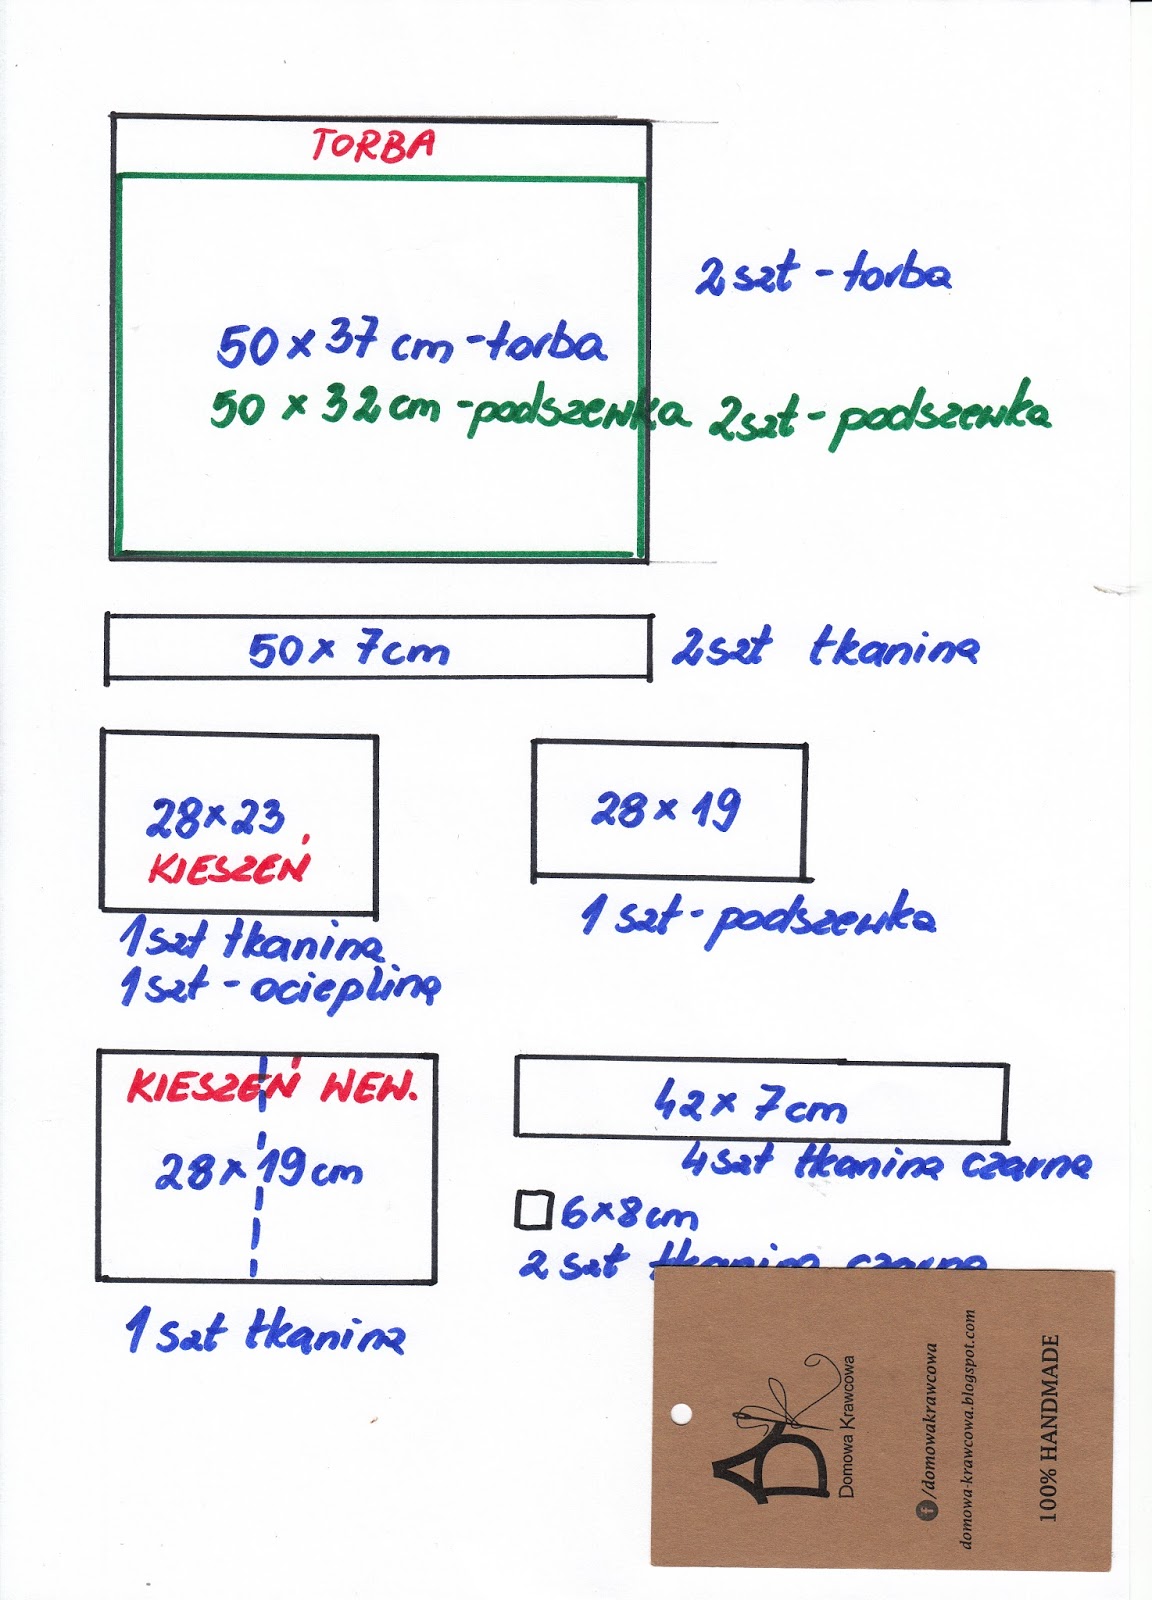 TORBA
50 x 37 cm - torba
2 szt - torba
50 x 32 cm - podszewka
2szt - podszewka
50 x 7cm
2szt tkanina
28 x 23
KIESZEŃ
1 szt tkanina
1 szt - ocieplina
28 x 19
1 szt - podszewka
KIESZEŃ WEW.
28 x 19 cm
1 szt tkanina
42 x 7 cm
4szt tkanina czarna
6 x 8 cm
2 szt tkanina czarna
DK
Domowa Krawcowa
f/domowakrawcowa
domowa-krawcowa.blogspot.com
100% HANDMADE